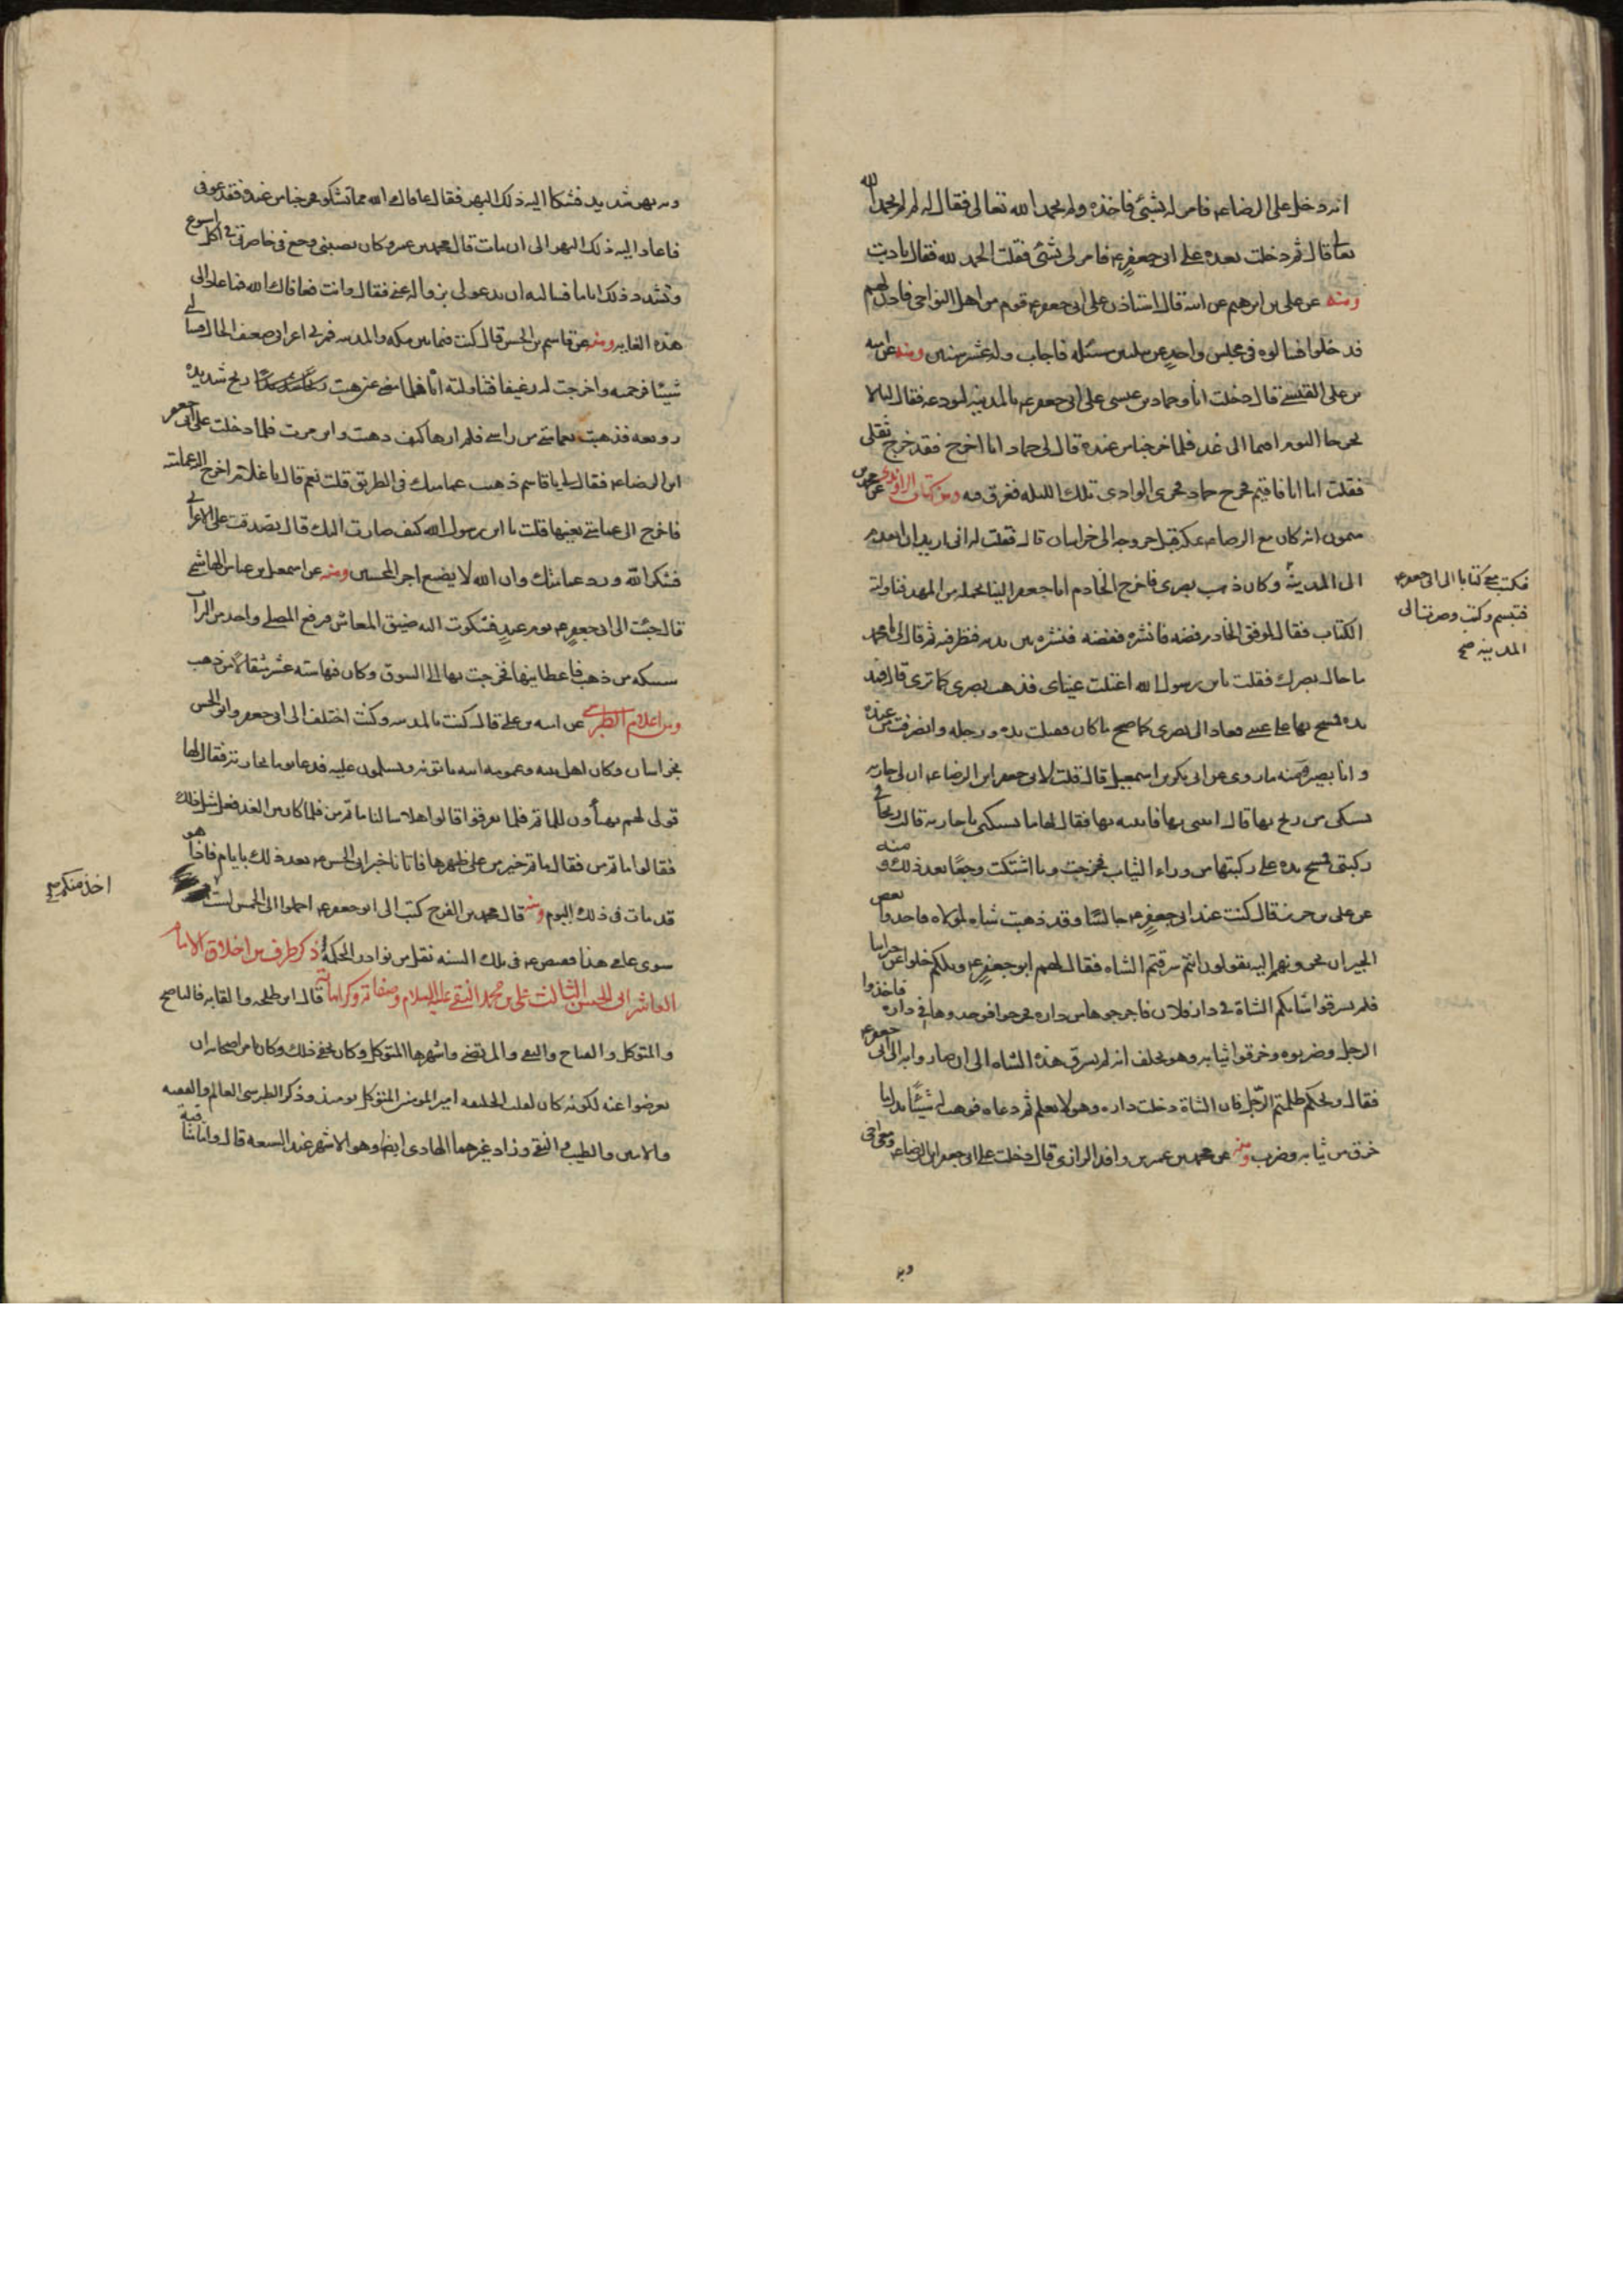 انه دخل على الرضاء فامر له بشئ فاخذه ولم يحمد الله تعالى فقال له لم لم تحمد الله
تعا قال ثم دخلت بعده على ابى جعفرء فامر لى بشئ فقلت الحمد لله فقال تادبت
ومنه عن على بن ابرهيم عن ابيه قال استاذن على ابى جعفرء قوم من اهل النواحى فاذن لهم
فدخلوا فسالوه فى مجلس واحد عن ثلثين مسئله فاجاب وله عشر سنين ومنه عن اميه
بن على القيسى قال دخلت انا وحماد بن عيسى على ابى جعفرء بالمدينه لنودعه فقال لنا لا
تخرجا اليوم اقيما الى غد فلما خرجنا من عنده قال لى حماد انا اخرج فقد خرج ثقلى
فقلت اما انا فاقيم فخرج حماد فجرى الوادى تلك الليله فغرق فيه ومن كتاب الراوندى عن محمد بن
ميمون انه كان مع الرضاء بمكه قبل خروجه الى خراسان قال فقلت له انى اريد ان اتقدم
الى المدينة وكان ذهب بصرى فاخرج الخادم ابا جعفر الينا يحمله من المهد فناولته
فكتب معى كتابا الى ابى جعفرء
فتبسم وكتب وصرت الى
المدينه صح
الكتاب فقال لموفق الخادم فضه فانشره ففضه فنشره بين يديه فنظر فيه ثم قال لى يا محمد
ما حال بصرك فقلت يا بن رسول الله اعتلت عيناى فذهب بصرى كما ترى قال فمد
يده فمسح بها على عينى فعاد الى بصرى كاصح ما كان فقبلت يده ورجله وانصرفت من عنده
وانا بصير ومنه ما روى عن ابى بكر بن اسمعيل قال قلت لابى جعفر ابن الرضاء ان لى جاريه
تشتكى من ريح بها قال ايتنى بها فاتيته بها فقال لها ما تشتكين يا جاريه قالت ريحا فى
ركبتى فمسح يده على ركبتها من وراء الثياب فخرجت وما اشتكت وجعًا بعد ذلك ومنه
عن على بن جرير قال كنت عند ابى جعفرء جالسًا وقد ذهبت شاه لمولاه فاخذوا بعض
الجيران يجرونهم اليه يقولون انتم سرقتم الشاه فقال لهم ابو جعفرء ويلكم خلوا عن جيراننا
فلم يسرقوا شاتكم الشاة فى دار فلان فاخرجوها من داره فخرجوا فوجدوها فى داره فاخذوا
الرجل وضربوه وخرقوا ثيابه وهو يحلف انه لم يسرق هذه الشاه الى ان صاروا به الى ابى جعفرء
فقال ويحكم ظلمتم الرجل فان الشاة دخلت داره وهو لا يعلم ثم دعاه فوهب له شيئًا بدل ما
خرق من ثيابه وضرب ومنه عن محمد بن عمير بن واقد الرازى قال دخلت على ابى جعفر ابن الرضاء ومعى اخى
وبه
وبه بهر شديد فشكا اليه ذلك البهر فقال عافاك الله مما تشكو فخرجنا من عنده وقد عوفى
فما عاد اليه ذلك البهر الى ان مات قال محمد بن عمر وكان يصيبنى وجع فى خاصرتى فى كل اسبوع
ويشتد ذلك اياما فسالته ان يدعو لى بزواله عنى فقال وانت فعافاك الله فما عاد الى
هذه الغايه ومنه عن قاسم بن الحسن قال كنت فيما بين مكه والمدينه فمر بى اعرابى ضعيف الحال فسالنى
شيئا فرحمته واخرجت له رغيفا فناولته اياه فلما مضى عنى هبت ريح شديده
زوبعه فذهبت بعمامتى من راسى فلم ارها كيف ذهبت واين مرت فلما دخلت على ابى جعفر
ابن الرضاء فقال لى يا قاسم ذهبت عمامتك فى الطريق قلت نعم قال يا غلام اخرج اليه عمامته
فاخرج الى عمامتى بعينها قلت يا ابن رسول الله كيف صارت اليك قال تصدقت على الاعرابى
فشكر الله ورد عمامتك وان الله لا يضيع اجر المحسنين ومنه عن اسمعيل بن عباس الهاشمى
قال جئت الى ابى جعفرء يوم عيد فشكوت اليه ضيق المعاش فرفع المصلى واخذ من التراب
سبيكه من ذهب فاعطانيها فخرجت بها الى السوق وكان فيها سته عشر مثقالًا من ذهب
ومن اعلام الطبرسى عن اميه بن على قال كنت بالمدينه وكنت اختلف الى ابى جعفر وابو الحسن
بخراسان وكان اهل بيته وعمومه ابيه ياتونه ويسلمون عليه فدعا يوما بجاريته فقال لها
قولى لهم يتهيأون للماتم فلما تفرقوا قالوا هلا سالنا ماتم من فلما كان من الغد فعل مثل ذلك
فقالوا ماتم من فقال ماتم خير من على ظهرها فاتانا خبر ابى الحسنء بعد ذلك بايام فاذا هو
قد مات فى ذلك اليوم ومنه قال محمد بن الفرج كتب الى ابو جعفرء احملوا الى الخمس لست
اخذ منكم صح
سوى عامى هذا فقبضء فى تلك السنه نقل من نوادر الحكمة ذكر طرف من اخلاق الامام
العاشر ابى الحسن الثالث على بن محمد النقى عليه السلام وصفاته وكراماته قال ابن طلحه والقابه فالناصح
والمتوكل والفتاح والنقى والمرتضى واشهرها المتوكل وكان يخفى ذلك وكان يامر اصحابه ان
يعرضوا عنه لكونه كان لقب الخليفه امير المومنين المتوكل يومئذ وذكر الطبرسى العالم والفقيه
والامين والطيب والنقى وزاد غيرهما الهادى ايضا وهو الاشهر عند الشيعه قال واما مناقبه